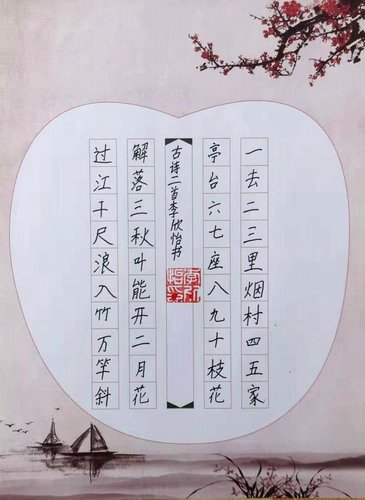 一去二三里烟村四五家
亭台六七座八九十枝花
古诗二首李欣怡书
解落三秋叶能开二月花
过江千尺浪入竹万竿斜